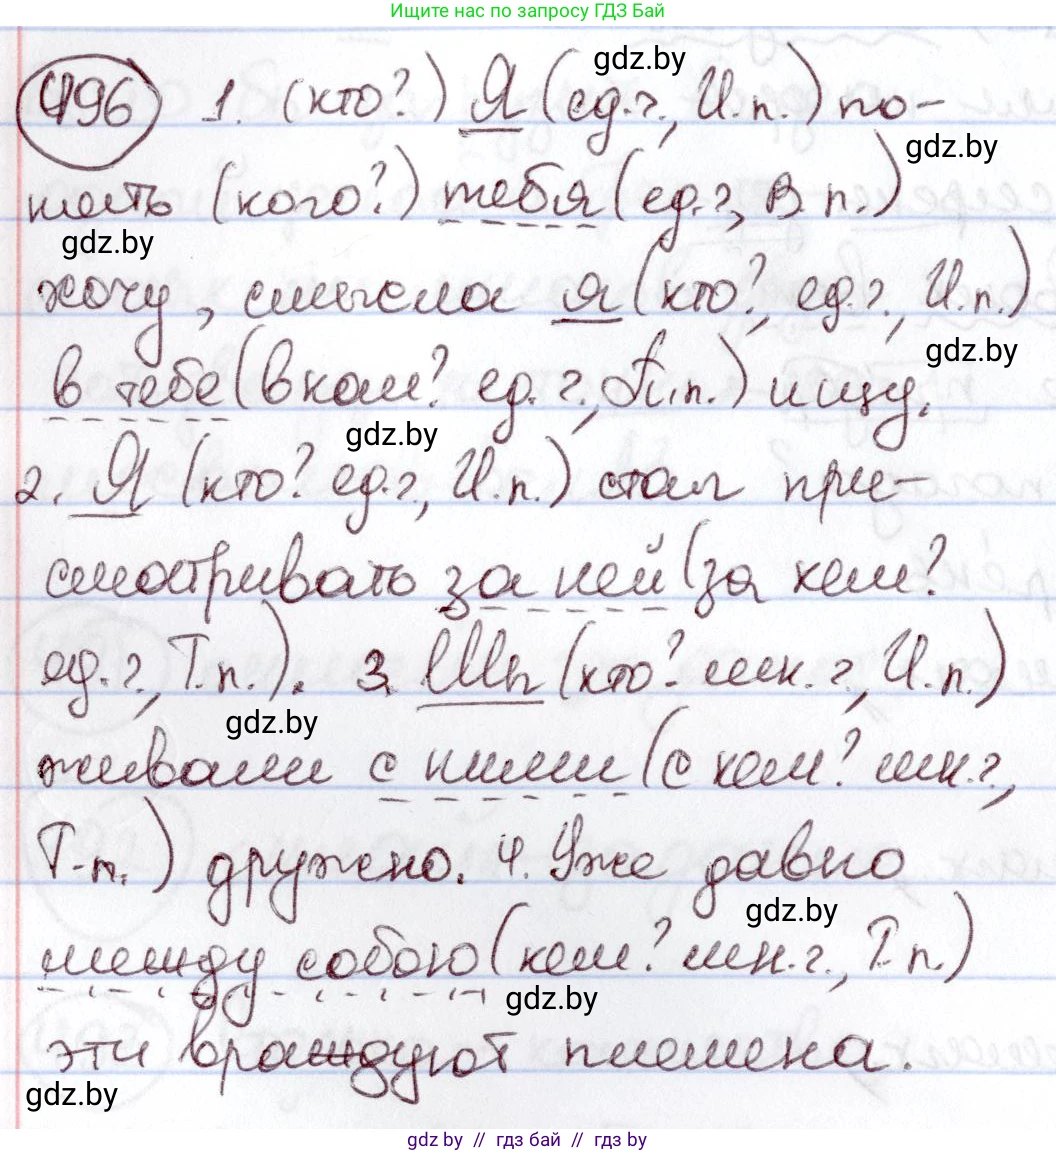 Ищите нас по запросу ГДЗ Бай
gdz.by
496 1. (кто?) Я (ед.ч., И.п.) по-
gdz.by
нять (кого?) тебя (ед.ч., В.п.)
gdz.by
хочу, смысла я (кто?, ед.ч., И.п.)
gdz.by
в тебе (в ком? ед.ч., П.п.) ищу.
gdz.by
2. Я (кто? ед.ч., И.п.) стал при-
сматривать за ней (за кем?
ед.ч., Т.п.). 3. Мы (кто? мн.ч., И.п.)
gdz.by
живали с ними (с кем? мн.ч.,
Т.п.) дружно. 4. Уже давно
gdz.by
между собою (кем? мн.ч., Т.п.)
gdz.by
эти враждуют племена.
gdz.by
gdz by // гдз бай // gdz by